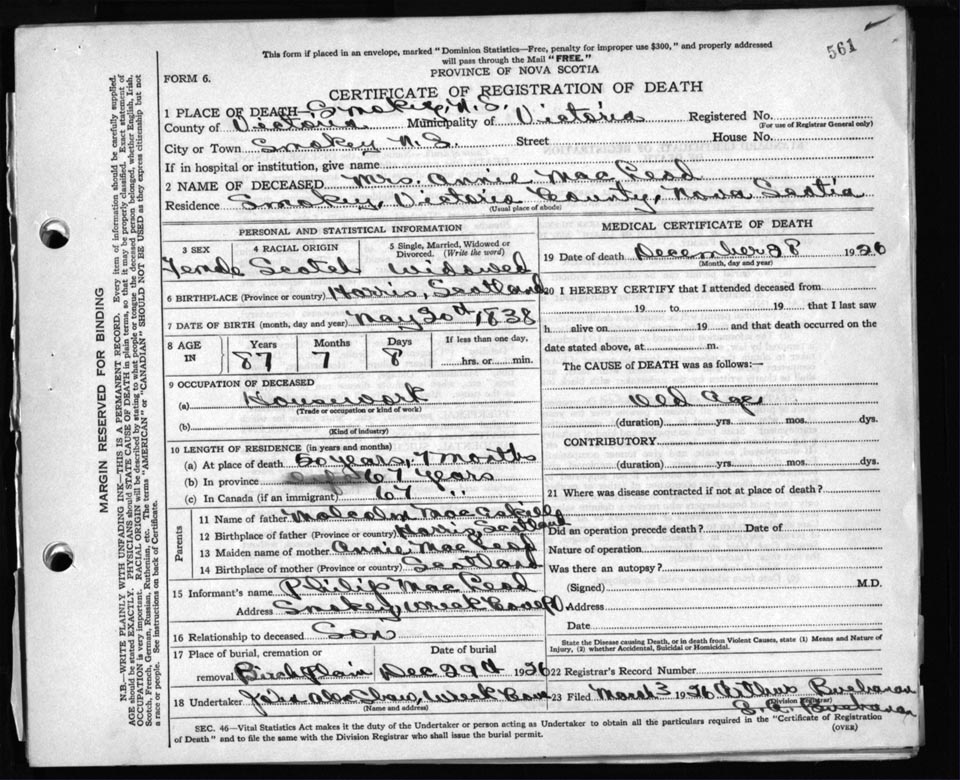 561
This form if placed in an envelope, marked "Dominion Statistics—Free, penalty for improper use $300," and properly addressed
will pass through the Mail "FREE."
FORM 6.
PROVINCE OF NOVA SCOTIA
CERTIFICATE OF REGISTRATION OF DEATH
1 PLACE OF DEATH Smokey, N.S.
County of Victoria Municipality of Victoria Registered No.
(For use of Registrar General only)
City or Town Smokey N.S. Street House No.
If in hospital or institution, give name
2 NAME OF DECEASED Mrs. Annie Mac Leod
Residence Smokey, Victoria County, Nova Scotia
(Usual place of abode)
PERSONAL AND STATISTICAL INFORMATION
3 SEX 4 RACIAL ORIGIN 5 Single, Married, Widowed or
Divorced. (Write the word)
Female Scotch Widowed
6 BIRTHPLACE (Province or country) Harris, Scotland
7 DATE OF BIRTH (month, day and year) May 20th, 1838
8 AGE IN Years Months Days If less than one day,
87 7 8 hrs. or min.
9 OCCUPATION OF DECEASED
(a) Housework
(Trade or occupation or kind of work)
(b)
(Kind of industry)
10 LENGTH OF RESIDENCE (in years and months)
(a) At place of death 60 years, 7 months
(b) In province 67 years
(c) In Canada (if an immigrant) 67 "
Parents
11 Name of father Malcolm Mac Askill
12 Birthplace of father (Province or country) Harris, Scotland
13 Maiden name of mother Annie Mac Leod
14 Birthplace of mother (Province or country) Scotland
15 Informant's name Philip Mac Leod
Address Smokey, Wreck Cove P.O.
16 Relationship to deceased Son
17 Place of burial, cremation or Date of burial
removal Birch Plain Dec 29th 1926
18 Undertaker Shaw, Wreck Cove
(Name and address)
MEDICAL CERTIFICATE OF DEATH
19 Date of death December 28 1926
(Month, day and year)
20 I HEREBY CERTIFY that I attended deceased from
19 to 19 that I last saw
h alive on 19 and that death occurred on the
date stated above, at m.
The CAUSE of DEATH was as follows:—
Old Age
(duration) yrs. mos. dys.
CONTRIBUTORY
(duration) yrs. mos. dys.
21 Where was disease contracted if not at place of death?
Did an operation precede death? Date of
Nature of operation
Was there an autopsy?
(Signed) M.D.
Address
Date
State the Disease causing Death, or in death from Violent Causes, state (1) Means and Nature of
Injury, (2) whether Accidental, Suicidal or Homicidal.
22 Registrar's Record Number
23 Filed March 3 1926 Arthur Buchanan
(Division Registrar)
Buchanan
SEC. 46—Vital Statistics Act makes it the duty of the Undertaker or person acting as Undertaker to obtain all the particulars required in the "Certificate of Registration
of Death" and to file the same with the Division Registrar who shall issue the burial permit. (OVER)
MARGIN RESERVED FOR BINDING
N.B.—WRITE PLAINLY WITH UNFADING INK—THIS IS A PERMANENT RECORD. Every item of information should be carefully supplied.
AGE should be stated EXACTLY. PHYSICIANS should STATE CAUSE OF DEATH in plain terms, so that it may be properly classified. Exact statement of
OCCUPATION is very important. RACIAL ORIGIN will be described by stating to what people or tongue the deceased person belonged, whether English, Irish,
Scotch, French, German, Russian, Ruthenian, etc. The terms "AMERICAN" or "CANADIAN" SHOULD NOT BE USED as they express citizenship but not
a race or people. See instructions on back of Certificate.